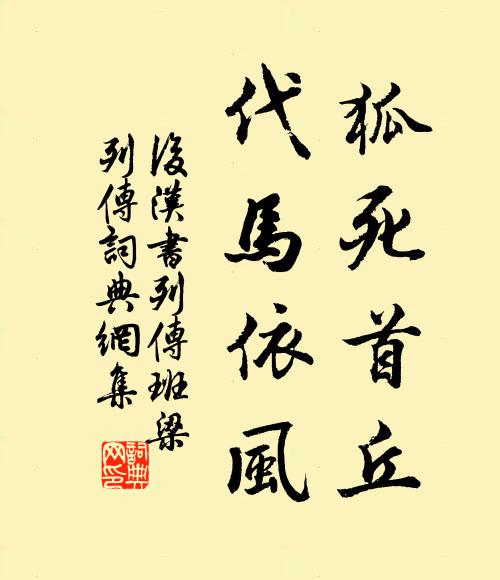 狐死首丘
代馬依風
後漢書列傳班梁
列傳詞典網集
詞典
网印